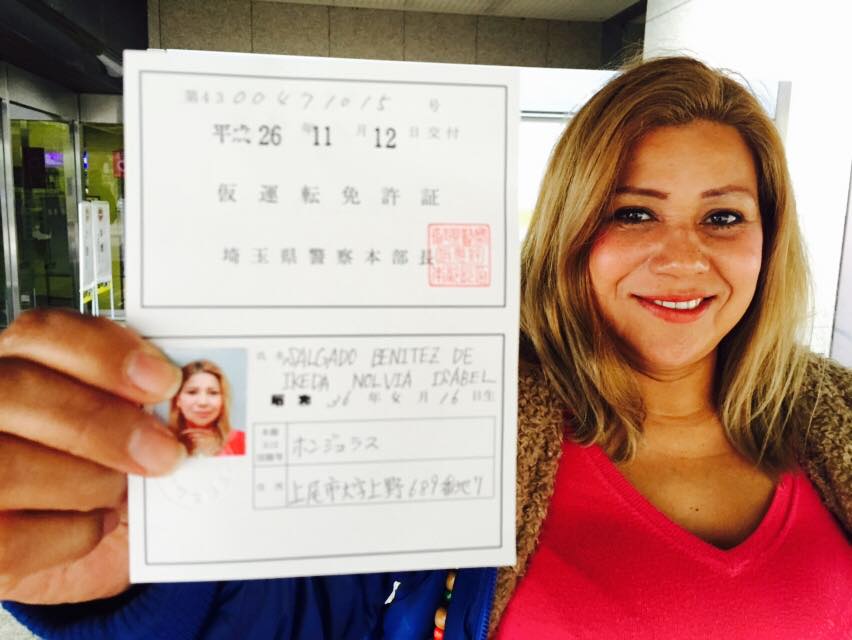 第4300471015号
平成26年11月12日交付
仮運転免許証
埼玉県警察本部長
氏名 SALGADO BENITEZ DE
IKEDA NOLVIA ISABEL
年 月16日生
ホンジュラス
住所 上尾市大字上野689番地7